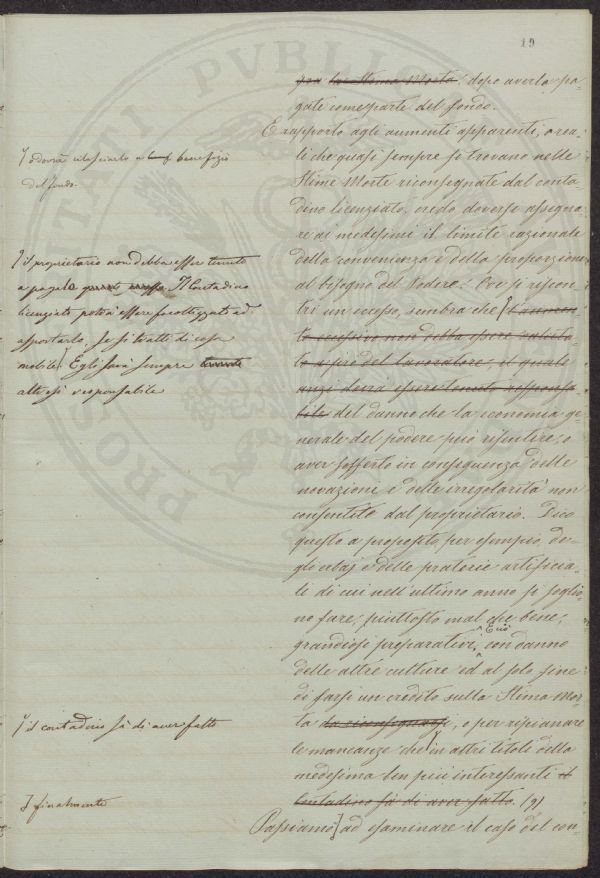 19
per la Stima Morta dopo averla pa-
gata come parte del fondo.
E rapporto agli aumenti apparenti, o rea-
li che quasi sempre si trovano nelle
Stime Morte riconsegnate dal conta-
dino licenziato, credo doversi assegna-
re ai medesimi il limite razionale
della convenienza e della proporzione
al bisogno del Podere. Ove si riscon-
tri un eccesso, sembra che l'aumen-
to eccessivo non debba essere valuta-
to a prò del lavoratore, il quale
anzi dovrà essere tenuto responsa-
bile del danno che la economia ge-
nerale del podere può risentire, o
aver sofferto in conseguenza delle
novazioni e delle irregolarità non
consentite dal proprietario. Dico
questo a proposito per esempio, de-
gli erbaj e delle praterie artificia-
li di cui nell'ultimo anno si soglio-
no fare, piuttosto mal che bene,
grandiosi preparativi, Ciò con danno
delle altre culture ed al solo fine
di farsi un credito sulla Stima Mor-
ta, o per ripianare
le mancanze che in altri titoli della
medesima ben più interessanti il
Contadino sà di aver fatto. (9)
Passiamo ad esaminare il caso del con-
o dovrà rilasciarlo a benefizio
del fondo.
il proprietario non debba essere tenuto
a pagarlo. Il Contadino
licenziato potrà essere facoltizzato ad
asportarlo, se si tratti di cose
mobili. Egli sarà sempre tenuto
altresì responsabile
il contadino sà di aver fatto
finalmente
PROSPERITATI PVBLICAE